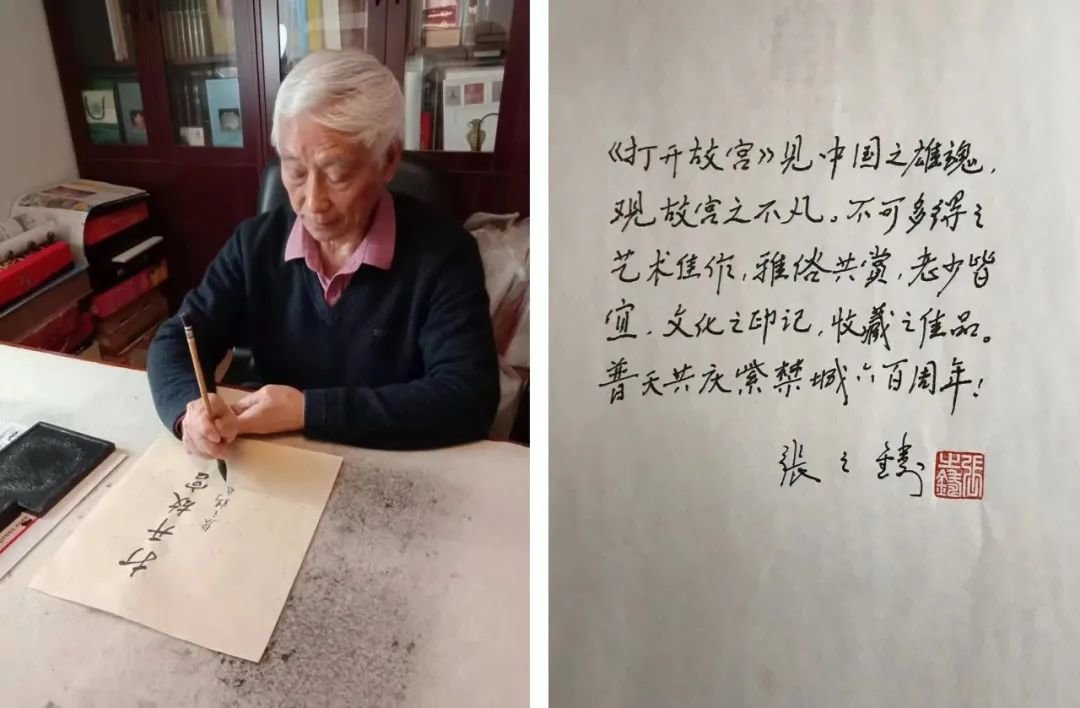 打开故宫
张之铸
《打开故宫》见中国之雄魂,
观故宫之不凡。不可多得之
艺术佳作,雅俗共赏,老少皆
宜、文化之印记,收藏之佳品。
普天共庆紫禁城六百周年!
张之铸
张之铸